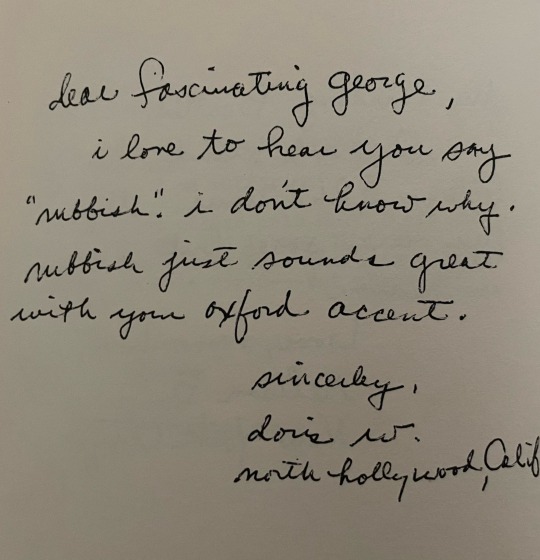 dear fascinating george,
i love to hear you say
"rubbish". i don't know why.
rubbish just sounds great
with your oxford accent.
sincerley,
doris w.
north hollywood, Calif